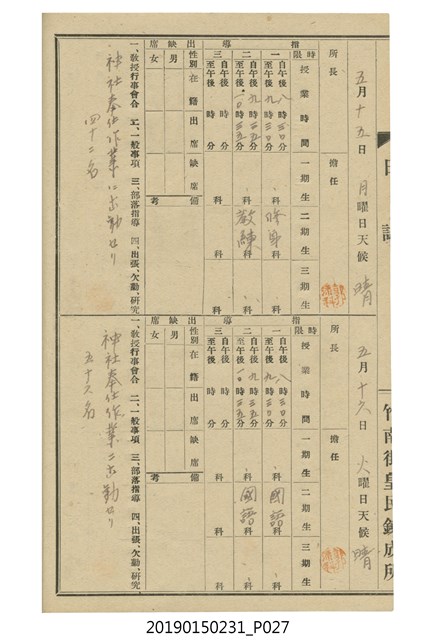 五月十五日 月曜日 天候 晴
所長 擔任
指導
時限 授業時間 一期生 二期生 三期生
一 自午後 八時三〇分 至午後 九時三〇分 科 科 科
二 自午後 九時三五分 至午後 一〇時三五分 科 教練 科 科
三 自午後 時 分 至午後 時 分 科 科 科
出缺席
性別 在籍 出席 缺席 備考
男
女
一、教授行事會合 二、一般事項 三、部落指導 四、出張、欠勤、研究
神社奉仕作業ニ出勤セリ
四十二名
五月十六日 火曜日 天候 晴
所長 擔任
指導
時限 授業時間 一期生 二期生 三期生
一 自午後 八時三〇分 至午後 九時三〇分 科 國語 科 科
二 自午後 九時三五分 至午後 一〇時三五分 科 國語 科 科
三 自午後 時 分 至午後 時 分 科 科 科
出缺席
性別 在籍 出席 缺席 備考
男
女
一、教授行事會合 二、一般事項 三、部落指導 四、出張、欠勤、研究
神社奉仕作業ニ出勤セリ
五十六名
竹南街皇民鍊成所
20190150231_P027